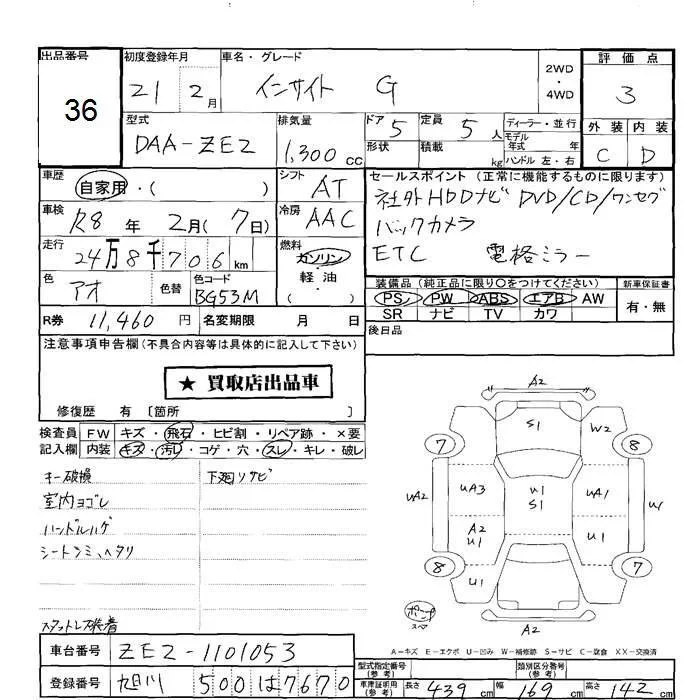 出品番号
36
初度登録年月
21 2月
車名・グレード
インサイト G
2WD
・
4WD
評価点
3
型式
DAA-ZE2
排気量
1,300cc
ドア 5
形状
定員 5人
積載 kg
ディーラー・並行
モデル
年式 年
ハンドル 左・右
外装 内装
C D
車歴
自家用・( )
シフト
AT
車検
R8年 2月(7日)
冷房
AAC
走行
24万8千706km
燃料
ガソリン
軽・油
( )
色
アオ
色替
色コード
BG53M
R券 11,460円 名変期限 月 日
セールスポイント(正常に機能するものに限ります)
社外HDDナビ DVD/CD/ワンセグ
バックカメラ
ETC 電格ミラー
装備品(純正品に限り○をつけてください)
PS PW ABS エアB AW
SR ナビ TV カワ
新車保証書
有・無
後日品
注意事項申告欄(不具合内容等は具体的に記入して下さい)
★ 買取店出品車
修復歴 有 〔箇所 〕
検査員
記入欄
FW キズ・飛石・ヒビ割・リペア跡・×要
内装 キズ・汚レ・コゲ・穴・スレ・キレ・破レ
キー破損
下廻りサビ
室内ヨゴレ
ハンドルハゲ
シートシミ、ヘタリ
スタットレス装着
車台番号 ZE2-1101053
登録番号 旭川 500 は 7670
A2
S1
W2
7
8
UA2
UA3
U1
S1
UA1
W
A2
U1
U1
8
7
U1
A2
A-キズ E-エクボ U-凹み W-補修跡 S-サビ C-腐食 XX-交換済
型式指定番号
(参考)
類別区分番号
(参考)
車庫証明用
(参考)
長さ 439cm 幅 169cm 高さ 142cm